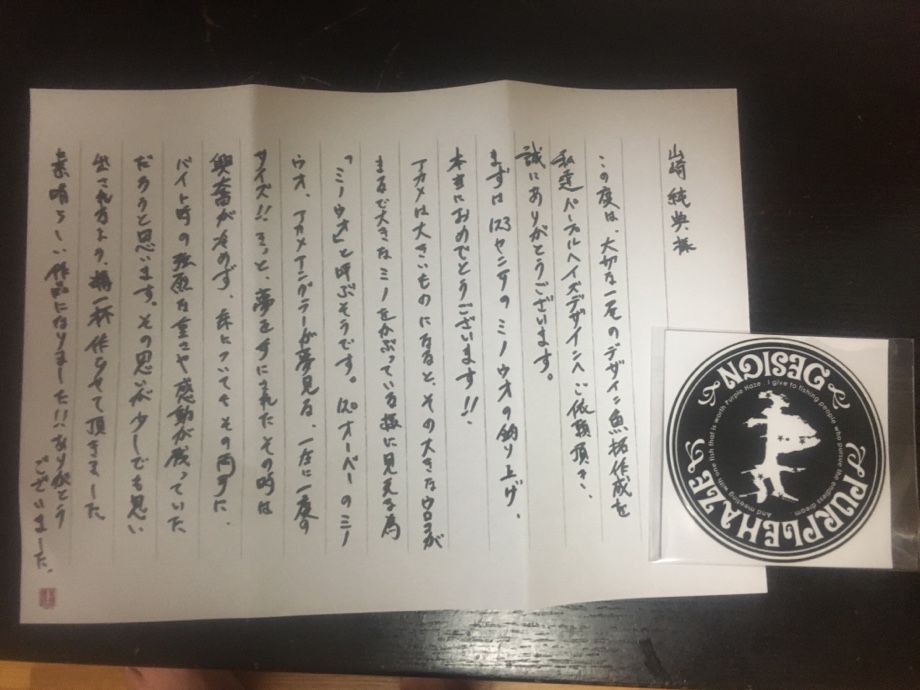 山崎 純典 様
この度は、大切な一尾のデザイン魚拓作成を
私達パープルヘイズデザインへご依頼頂き、
誠にありがとうございます。
まずは123センチのミノウオの釣り上げ、
本当におめでとうございます!!
アカメは大きいものになると、その大きなウロコが
まるで大きなミノをかぶっている様に見える為
「ミノウオ」と呼ぶそうです。120オーバーのミノ
ウオ、アカメアングラーが夢見る、一生に一度の
サイズ!!きっと、夢を手にされたその時は
興奮がおさめず、床についてもその両手に
バイト時の強烈な重さや感動が残っていた
だろうと思います。その思いが少しでも思い
出される様、精一杯作らせて頂きました
素晴らしい作品になりました!!ありがとう
ございました。
DESIGN
PURPLEHAZE
And meeting with one fish that is worth Purple Haze. I give to fishing people who pursue the endless dream.